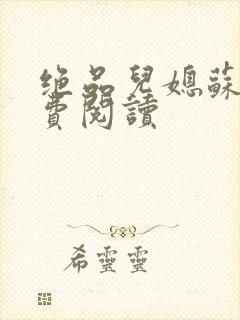 绝品兒媳蘇
費閱讀
希靈靈